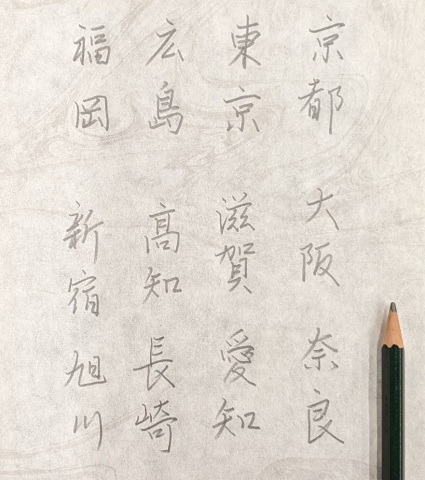 京都 大阪 奈良
東京 滋賀 愛知
広島 高知 長崎
福岡 新宿 旭川